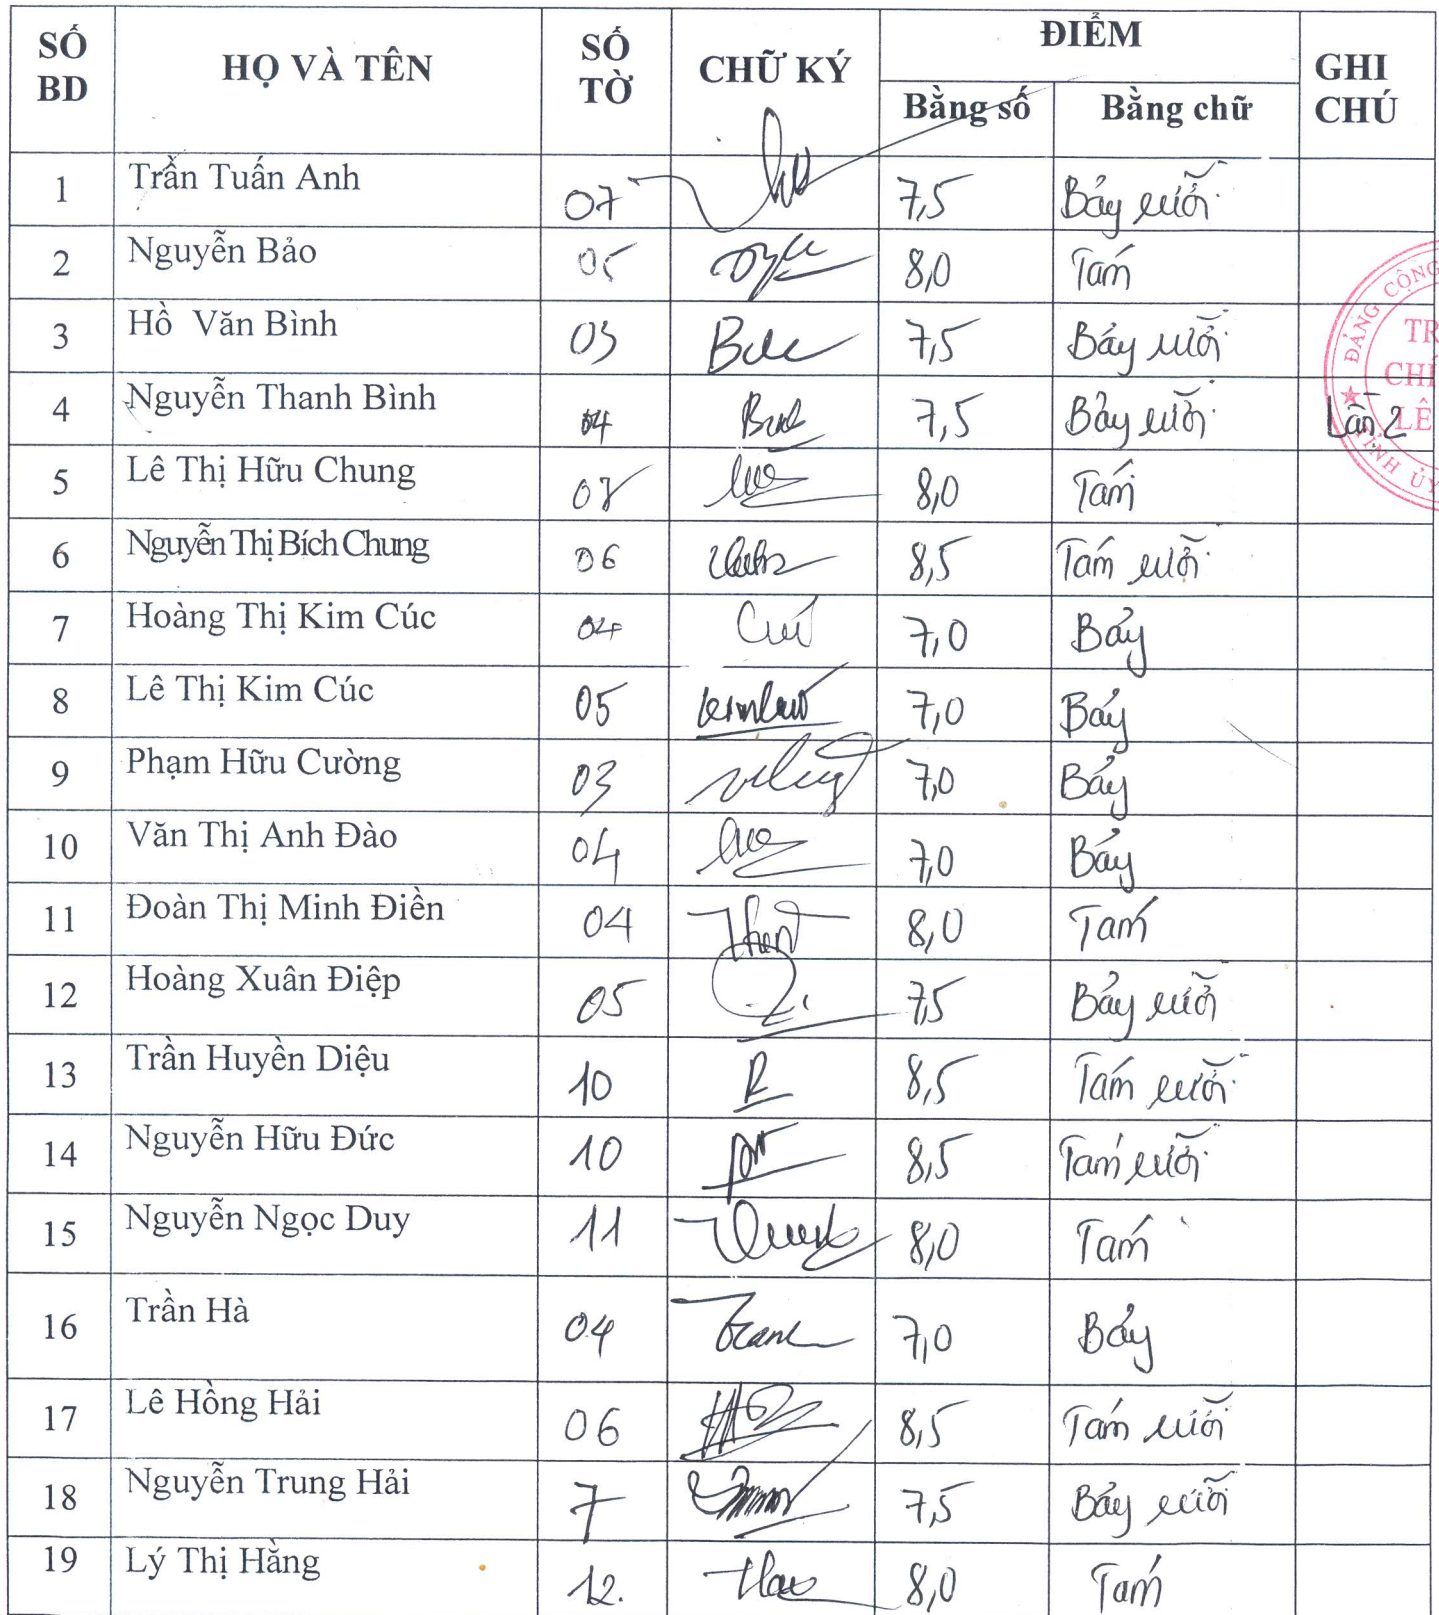 SỐ BD HỌ VÀ TÊN SỐ TỜ CHỮ KÝ ĐIỂM GHI CHÚ
Bằng số Bằng chữ
1 Trần Tuấn Anh 07 7,5 Bảy rưỡi
2 Nguyễn Bảo 05 8,0 Tám
3 Hồ Văn Bình 03 7,5 Bảy rưỡi
4 Nguyễn Thanh Bình 04 7,5 Bảy rưỡi Lần 2
5 Lê Thị Hữu Chung 8,0 Tám
6 Nguyễn Thị Bích Chung 06 8,5 Tám rưỡi
7 Hoàng Thị Kim Cúc 04 7,0 Bảy
8 Lê Thị Kim Cúc 05 7,0 Bảy
9 Phạm Hữu Cường 03 7,0 Bảy
10 Văn Thị Anh Đào 04 7,0 Bảy
11 Đoàn Thị Minh Điền 04 8,0 Tám
12 Hoàng Xuân Điệp 05 7,5 Bảy rưỡi
13 Trần Huyền Diệu 10 8,5 Tám rưỡi
14 Nguyễn Hữu Đức 10 8,5 Tám rưỡi
15 Nguyễn Ngọc Duy 11 8,0 Tám
16 Trần Hà 04 7,0 Bảy
17 Lê Hồng Hải 06 8,5 Tám rưỡi
18 Nguyễn Trung Hải 7 7,5 Bảy rưỡi
19 Lý Thị Hằng 12. 8,0 Tám
ĐẢNG CỘNG
TR
CHÍ
LÊ
TỈNH ỦY